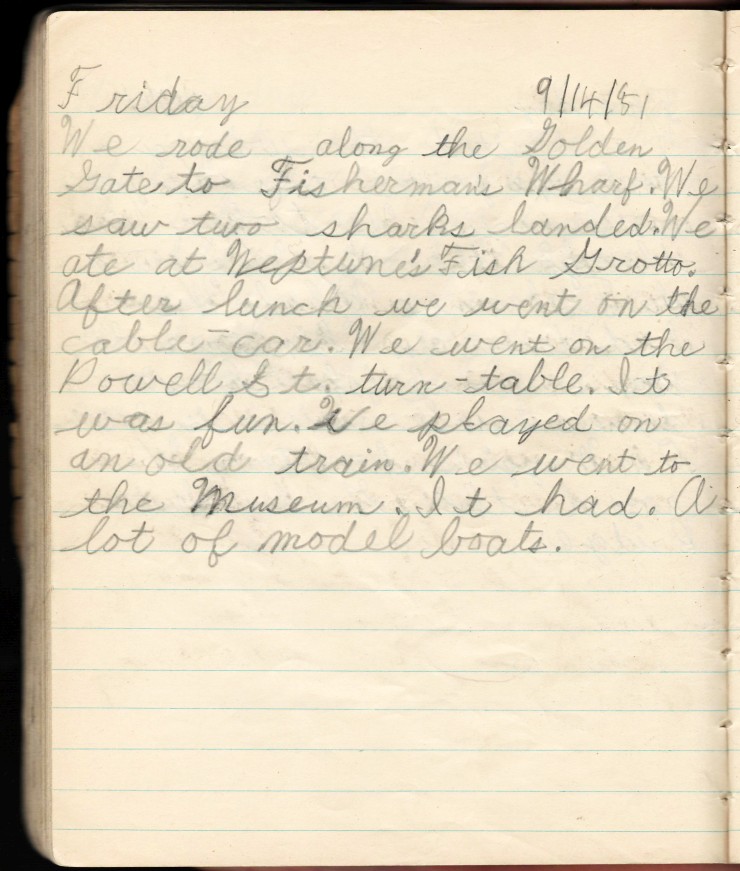 Friday 9/14/51
We rode along the Golden
Gate to Fisherman's Wharf. We
saw two sharks landed. We
ate at Neptune's Fish Grotto.
After lunch we went on the
cable-car. We went on the
Powell St. turn-table. It
was fun. We played on
an old train. We went to
the Museum. It had. A
lot of model boats.